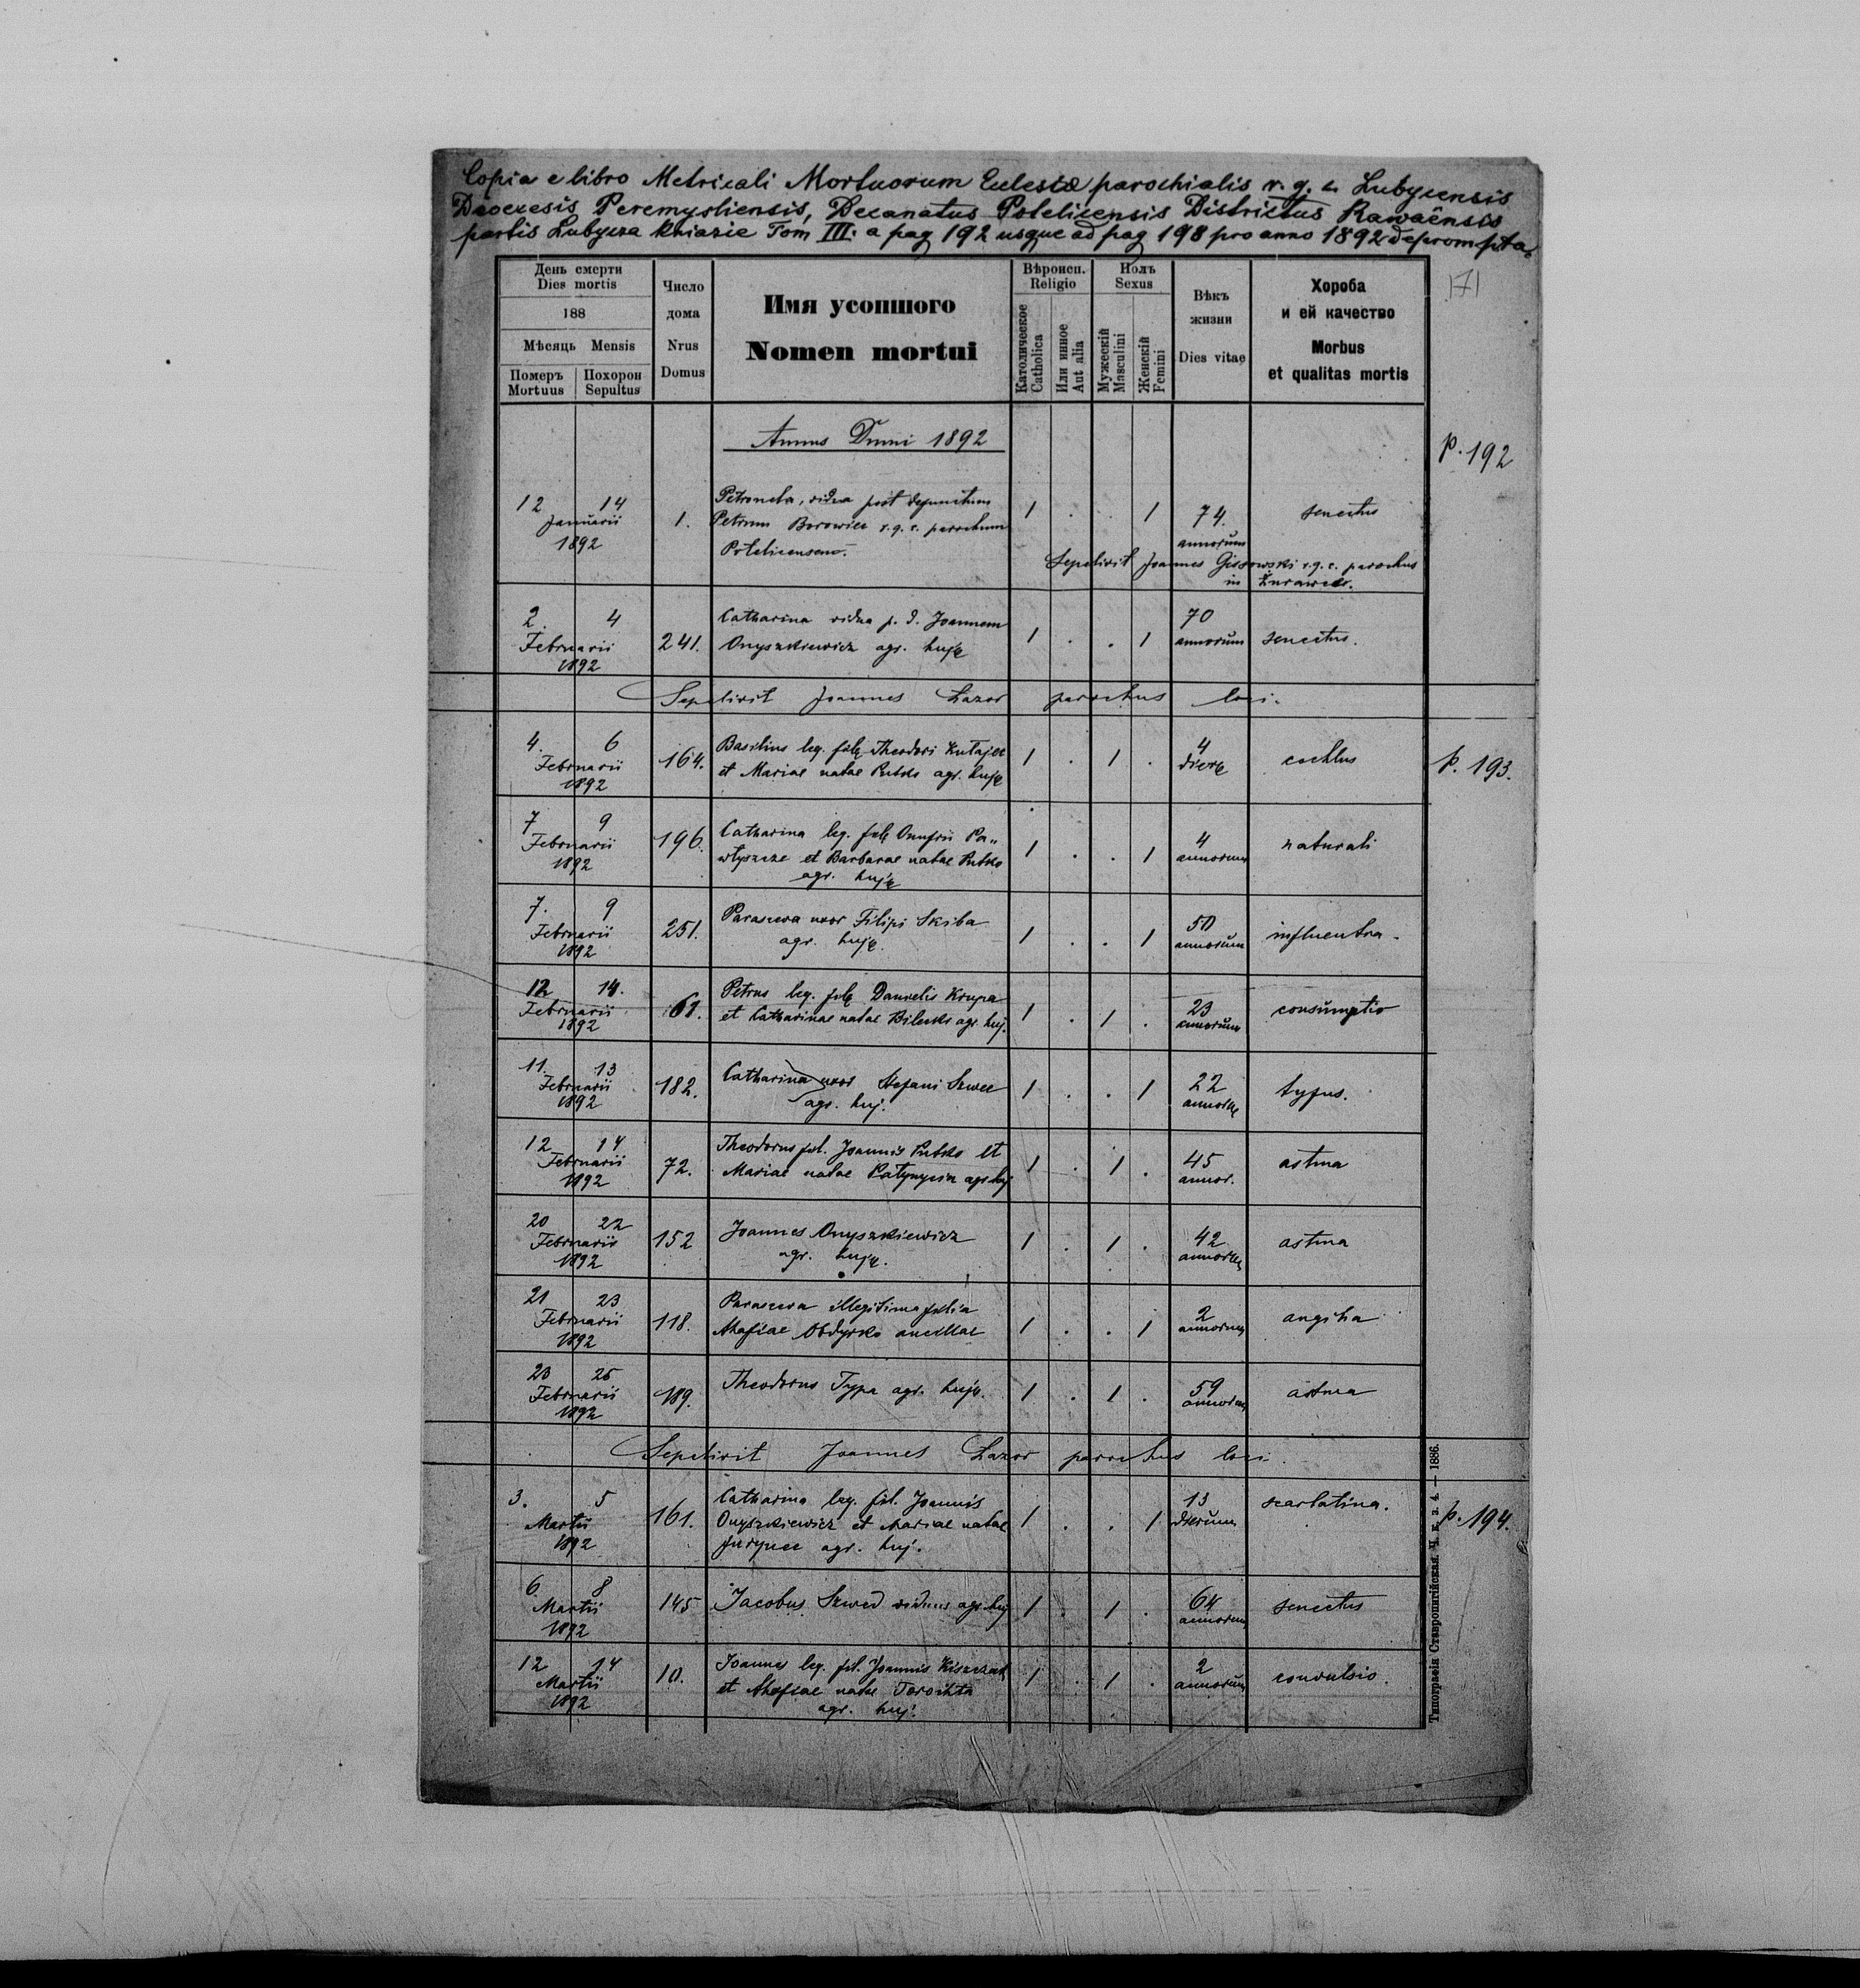 Copia e libro Metricali Mortuorum Eclesiæ parochialis r. g. c. Lubycensis
Dioecesis Peremysliensis, Decanatus Potelicensis Districtus Rawaënsis
partis Lubycza kniazie Tom III. a pag 192 usque ad pag 198 pro anno 1892 deprompta.
171
День смерти
Dies mortis
188
Мѣсяць Mensis
Померъ
Mortuus
Похорон
Sepultus
Число
дома
Nrus
Domus
Имя усопшого
Nomen mortui
Вѣроисп.
Religio
Католическое
Catholica
Или инное
Aut alia
Полъ
Sexus
Мужескій
Masculini
Женскій
Femini
Вѣкъ
жизни
Dies vitae
Хороба
и ей качество
Morbus
et qualitas mortis
Annus Dmni 1892
p. 192
12 14
Januarii
1892
1.
Petronela, vidua post defunctum
Petrum Borowiec r. g. c. parochum
Potelicensem.
1 . . 1
74.
annorum
senectus
Sepelivit Joannes r. g. c. parochus
in Żurawce.
2. 4
Februarii
1892
241.
Catharina vidua p. d. Joannem
Onyszkiewicz agr. huj.
1 . . 1
70
annorum
senectus.
Sepelivit Joannes Lazor parochus loci.
4. 6
Februarii
1892
164.
Basilius leg. fil. Theodori
et Mariae natae Putko agr. huj.
1 . 1 .
4
p. 193.
7 9
Februarii
1892
196.
Catharina leg. fil. Onufrii Pa„
włyszcze et Barbarae natae Putko
agr. huj.
1 . . 1
4
annorum
naturali
7. 9
Februarii
1892
251.
Parascewa uxor Filipi Skiba
agr. huj.
1 . . 1
50
annorum
influentra.
12 14.
Februarii
1892
61.
Petrus leg. fil. Danielis Krupa
et Catharinae natae agr. huj.
1 . 1 .
23
annorum
consumptio
11. 13
Februarii
1892
182.
Catharina uxor Stefani Szwec
agr. huj.
1 . . 1
22
annor.
tyfus.
12 14
Februarii
1892
72.
Theodorus fil. Joannis Putko et
Mariae natae agr huj
1 . 1 .
45
annor.
astma
20 22
Februarii
1892
152
Joannes Onyszkiewicz
agr. huj.
1 . 1 .
42
annorum
astma
21 23
Februarii
1892
118.
Parascewa illegitima filia
Ahafiae ancillae
1 . . 1
2
annorum
angina
23 25
Februarii
1892
189.
Theodorus Typa agr. huj.
1 . 1 .
59
annorum
astma
Sepelivit Joannes Lazor parochus loci.
3. 5
Martii
1892
161.
Catharina leg. fil. Joannis
Onyszkiewicz et Mariae natae
agr. huj.
1 . . 1
13
dierum
scarlatina.
p. 194.
6 8
Martii
1892
145
Jacobus Szwed viduus agr. huj
1 . 1 .
64
annorum
senectus
12 14
Martii
1892
10.
Joannes leg. fil. Joannis
et Ahafiae natae
agr. huj.
1 . 1 .
2
annorum
convulsio.
Типографія Ставропигійская. Ч. к. з. 4. — 1886.